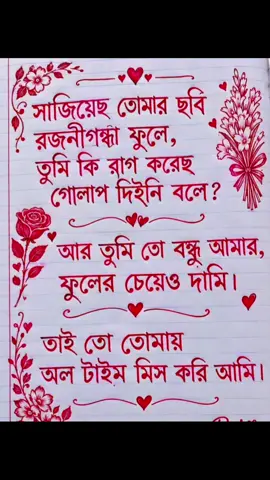 সাজিয়েছ তোমার ছবি
রজনীগন্ধা ফুলে,
তুমি কি রাগ করেছ
গোলাপ দিইনি বলে?
আর তুমি তো বন্ধু আমার,
ফুলের চেয়েও দামি।
তাই তো তোমায়
অল টাইম মিস করি আমি।